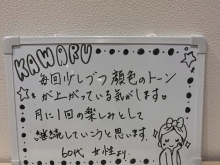 KAWARU
毎回少しづつ顔色のトーン
が上がっている気がします。
月に1回の楽しみとして
継続していこうと思います.
60代 女性より.